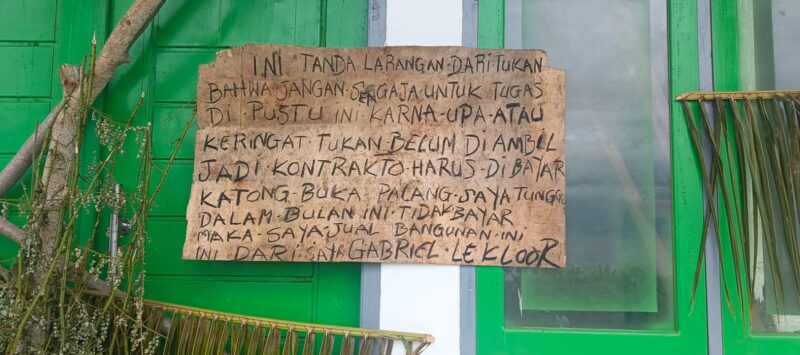 INI TANDA LARANGAN. DARI TUKAN
BAHWA JANGAN. SEGAJA. UNTUK TUGAS
DI. PUSTU. INI. KARNA. UPA. ATAU
KERINGAT. TUKAN. BELUM. DI AMBIL
JADI. KONTRAKTO. HARUS. DI BAYAR
KATONG. BUKA. PALANG. SAYA TUNGGU
DALAM. BULAN. INI. TIDAK BAYAR
MAKA. SAYA. JUAL. BANGUNAN. INI
INI DARI. SAYA GABRIEL. LEKLOOR